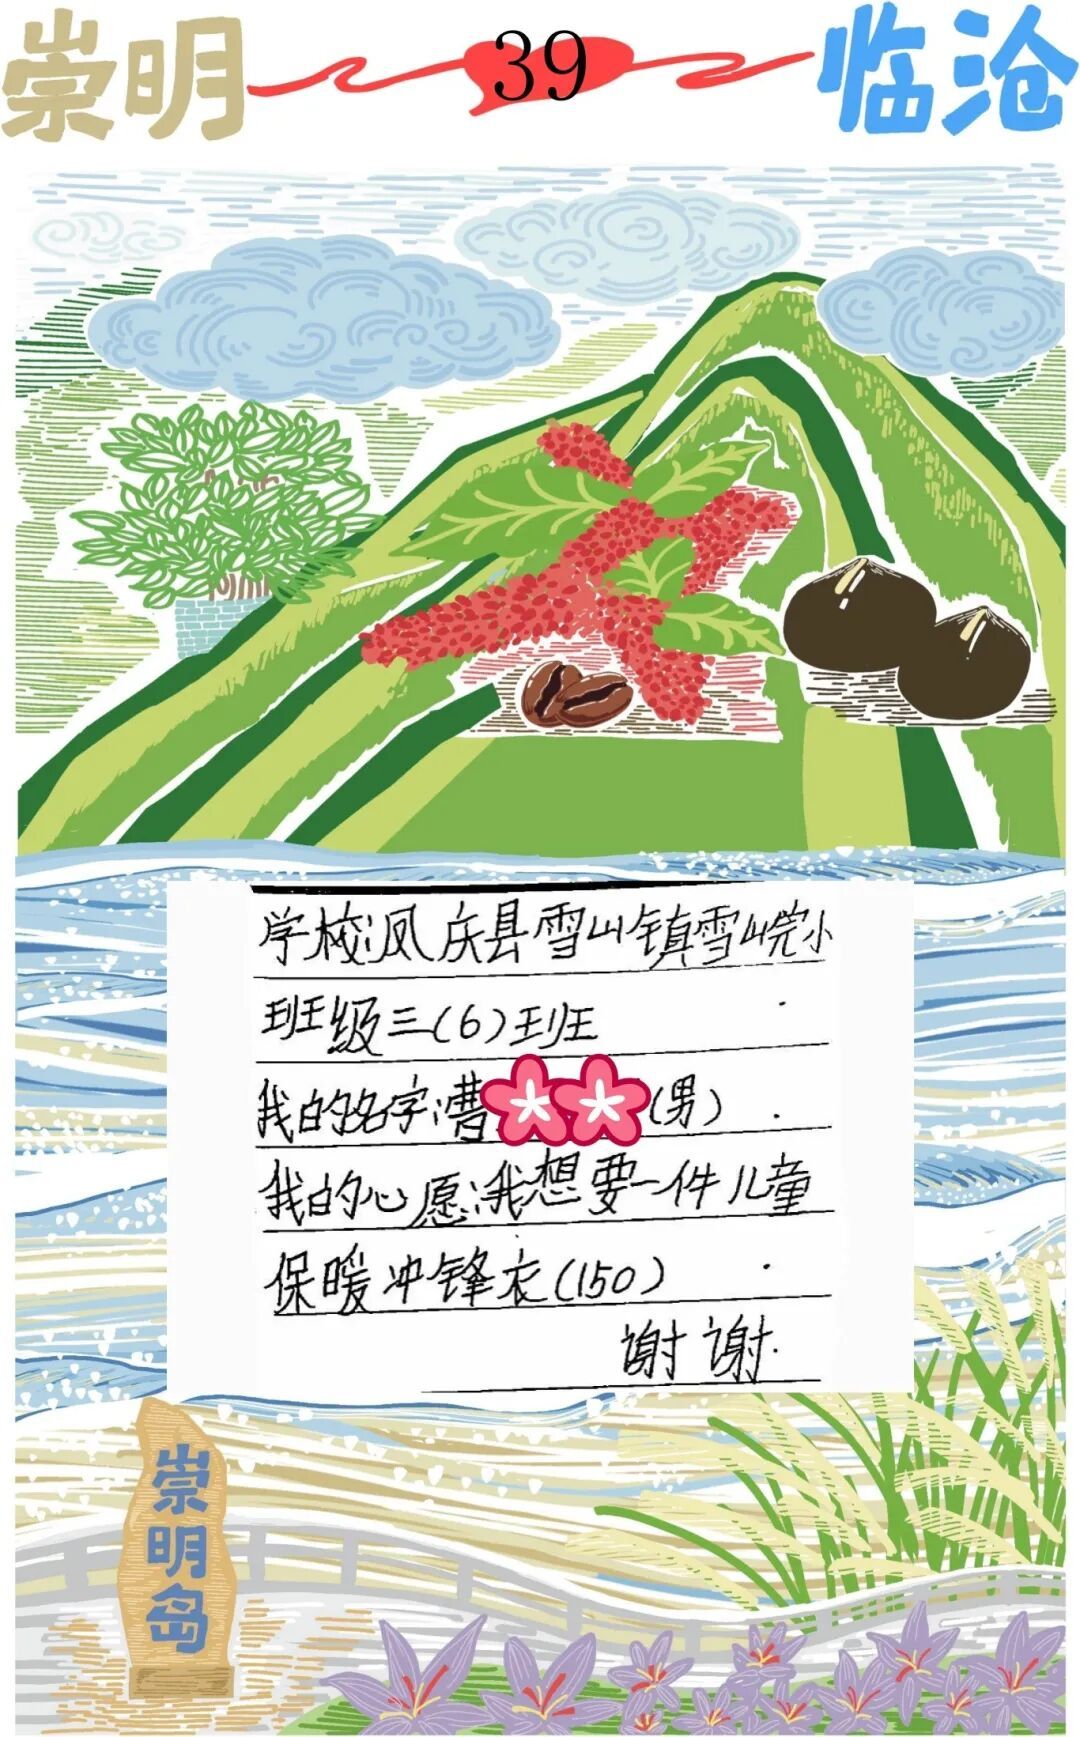 崇明 39 临沧
学校:凤庆县雪山镇雪山完小
班级三(6)班
我的名字:曹(男)
我的心愿:我想要一件儿童
保暖冲锋衣(150)
谢谢.
崇明岛